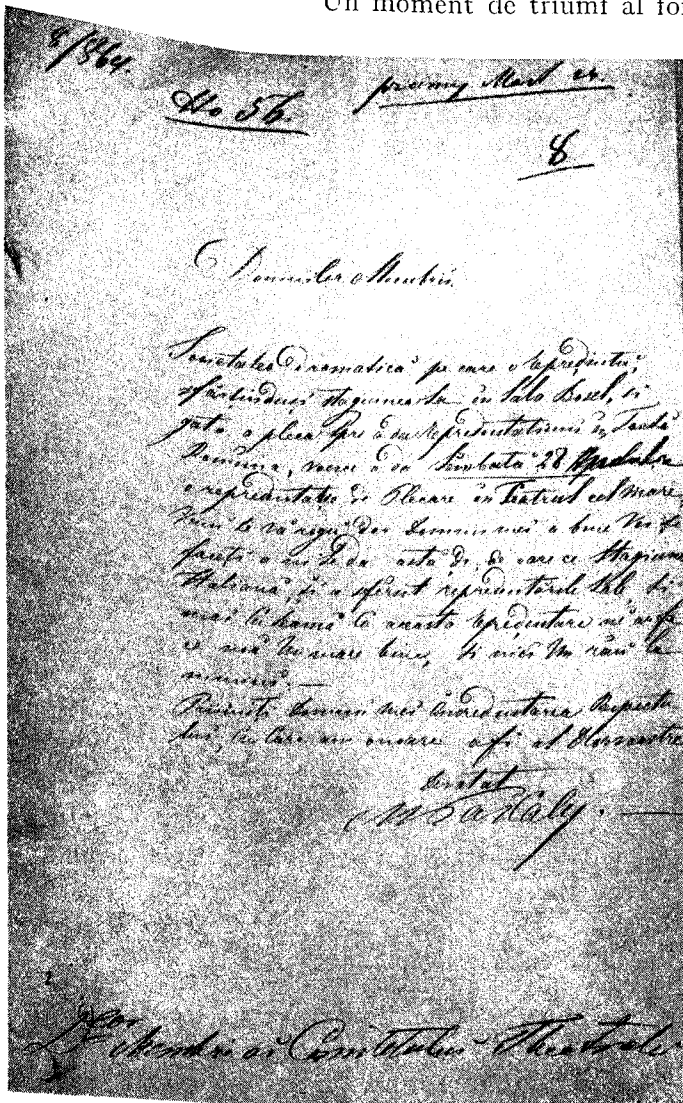 Un moment de triumf al for
8/864.
No 56.
Mart
8
Domnilor Membrii.
Societatea Dramatica pe care o represintu,
stagiunea in Sala Bosel, si
gata a pleca spre a da representatiuni in Toată
România, a da Simbata 28
o representatie de Plecare in Teatrul cel mare,
Domni mei a bine voi se
faceti a mi se da de oare ce Stagiunea
Italiana, si a sferșit representările Sale, si
mai cu samă că aceasta represintare ne
mare bine, si nici un rău la
nimeni.—
Primiti Domni mei incredintarea Respectu
lui, cu care am onoare a fi al Dumneavoastre
M Pascaly.
2
Membrii ai Comitetului Theatrale